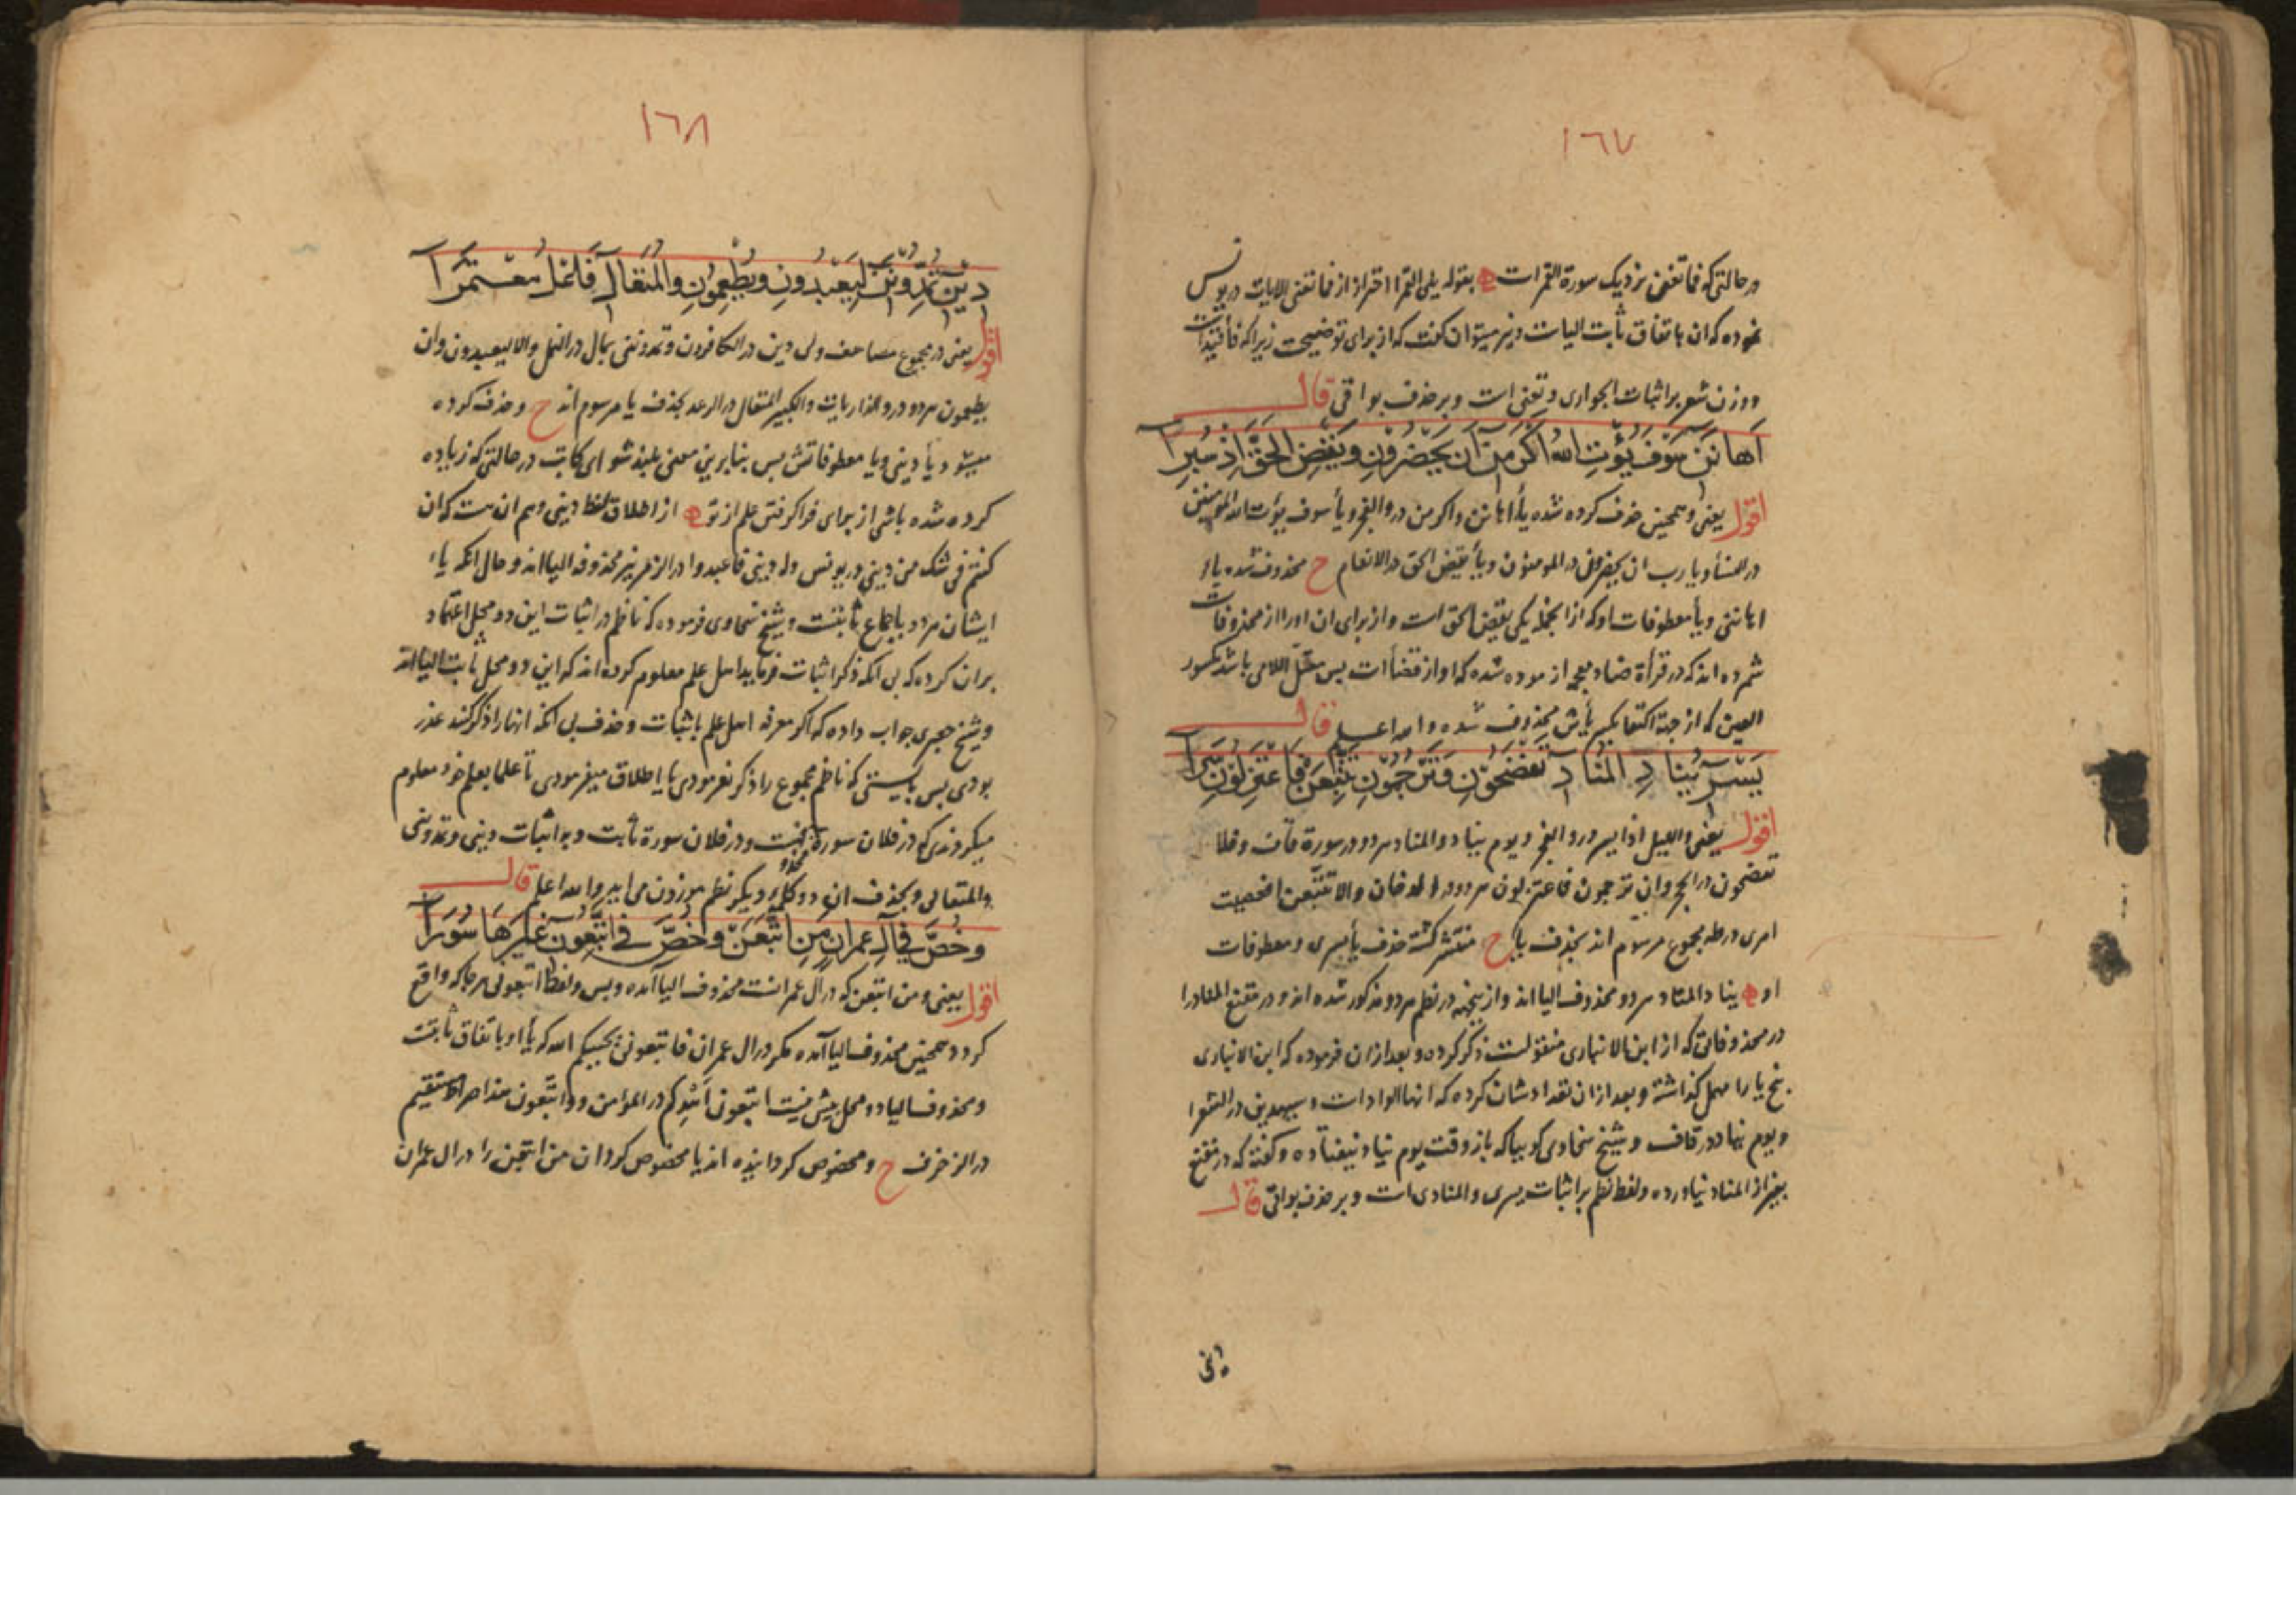 ١٦٧
در حالتی که فما تغن نزدیک سورة القمر است بقوله یلی القمرا احتراز از فما تغنی الایات در یونس
نموده که ان باتفاق ثابت الیاست ونیز میتوان گفت که از برای توضیحست زیرا که
ووزن شعر بر اثبات الجواری وتغنی است وبر حذف بواقی قال
اَهَانَنِ سَوْفَ يُؤْتِ اللهُ اَكْرَمَنِ اَنْ يَحْضُرُونِ وَيَقْضِ الْحَقَّ اِذْ سُبِرَا
اقول یعنی وهمچنین حذف کرده شده یاء اهانن واکرمن در والفجر ویاء سوف یؤت الله المؤمنین
در النسا ویا رب ان یحضرون در المومنون ویاء یقض الحق در الانعام ح محذوف شده یاء
اهاننی ویاء معطوفات او که از انجمله یکی یقض الحق است واز برای ان اورا از محذوفات
شمرده اند که در قرأة ضاد معجمه ازموده شده که او از قضاء است پس معتل اللامی باشد مکسور
العین که از جهة اکتفا بکسر یائش محذوف شده والله اعلم قال
يَسْرِ يُنَادِ الْمُنَادِ تَفْضَحُونِ وَتَرْجُمُونِ تَتَّبِعَنْ فَاعْتَزِلُونِ سَرَا
اقول یعنی واللیل اذا یسر در والفجر ویوم یناد والمناد هردو در سورة قاف وفلا
تفضحون در الحجر وان ترجمون فاعتزلون هردو در الدخان والا تتبعن افعصیت
امری در طه بمجموع مرسوم اند بحذف یا ح منتشر گشته حذف یاء یسری ومعطوفات
او یناد المناد هردو محذوف الیااند واز ینجهة در نظم هردو مذکور شده اند ودر مقنع المنادرا
در محذوفاتی که از ابن الانباری منقولست ذکر کرده وبعد ازان فرموده که ابن الانباری
پنج یا را مهمل گذاشته وبعد ازان تعدادشان کرده که انها الوادات وسیهدین در الشعرا
ویوم یناد در قاف وشیخ سخاوی گوییا که باز وقت یوم یناد نیفتاده وگفته که در مقنع
بغیر از المناد نیاورده ولفظ نظم بر اثبات یسری والمنادی است وبر حذف بواقی قال
١٦٨
دِيْنِ تُمِدُّونَنِ لِيَعْبُدُونِ وَيُطْعِمُونِ وَالْمُتَعَالِ فَاعْلُ مُعْتَمِرَا
اقول یعنی در مجموع مصاحف ولی دین در الکافرون وتمدوننی بمال در النمل والا لیعبدون وان
یطعمون هردو در والذاریات والکبیر المتعال در الرعد بحذف یا مرسوم اند ح وحذف کرده
میشود یاء دینی ویا معطوفاتش پس بنابرین معنی بلند شو ای کاتب در حالتی که زیاده
کرده شده باشی از برای فرا گرفتن علم از تو از اطلاق لفظ دینی وهم ان هست که ان
کنتم فی شک من دینی در یونس وله دینی فاعبدوا در الزمر نیز محذوفة الیااند وحال انکه یاء
ایشان هردو باجماع ثابتست وشیخ سخاوی فرموده که ناظم در اثبات این دو محل اعتماد
بران کرده که بی انکه ذکر اثبات فرماید اهل علم معلوم کرده اند که این دو محل ثابت الیااند
وشیخ جعبری جواب داده که اگر معرفه اهل علم باثبات وحذف بی انکه انها را ذکر کنند عذر
بودی پس بایستی که ناظم مجموع را ذکر نفرمودی یا اطلاق میفرمودی تا علما بعلم خود معلوم
میکردندی که در فلان سورة محذوفست ودر فلان سورة ثابت وبر اثبات دینی وتمدوننی
والمتعالی وبحذف ان دو کلمه دیگر نظم موزون می اید والله اعلم قال
وَخُصَّ فِي آلِ عِمْرَانَ مَنِ اتَّبَعَنْ وَخُصَّ فِي اتَّبِعُونِ غَيْرَهَا سُوَرَا
اقول یعنی ومن اتبعن که در آل عمرانست محذوف الیا آمده وبس ولفظ اتبعونی هرجا که واقع
گردد همچنین محذوف الیا آمده مگر در ال عمران فاتبعونی یحببکم الله که یاء او باتفاق ثابتست
ومحذوف الیا دو محل بیش نیست اتبعون اهدکم در المؤمن وواتبعون هذا صراط مستقیم
در الزخرف ح ومخصوص گردانیده اند یا مخصوص گردان من اتبعن را در ال عمران